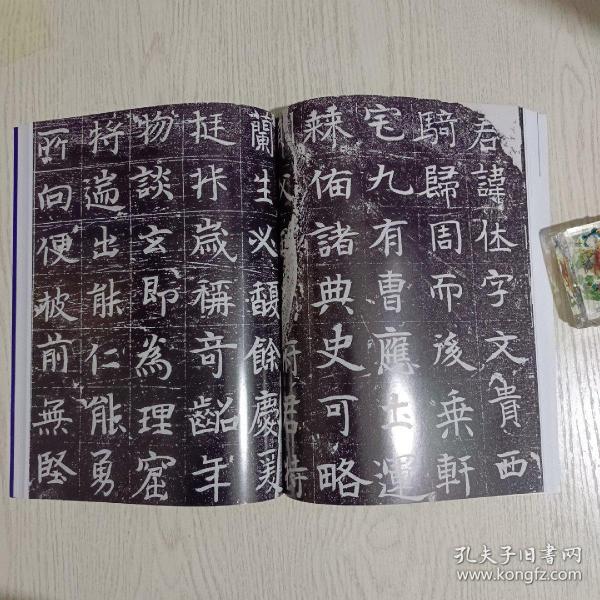 君諱休字文貴西
騎歸周而後乘軒
宅九有曹應土運
備諸典史可略
府君特
蘭生必馥餘慶
挺歲稱奇齠年
物談玄即為理窟
將遄出能仁能勇
所向便披前無堅
孔夫子旧書网
www.kongfz.com